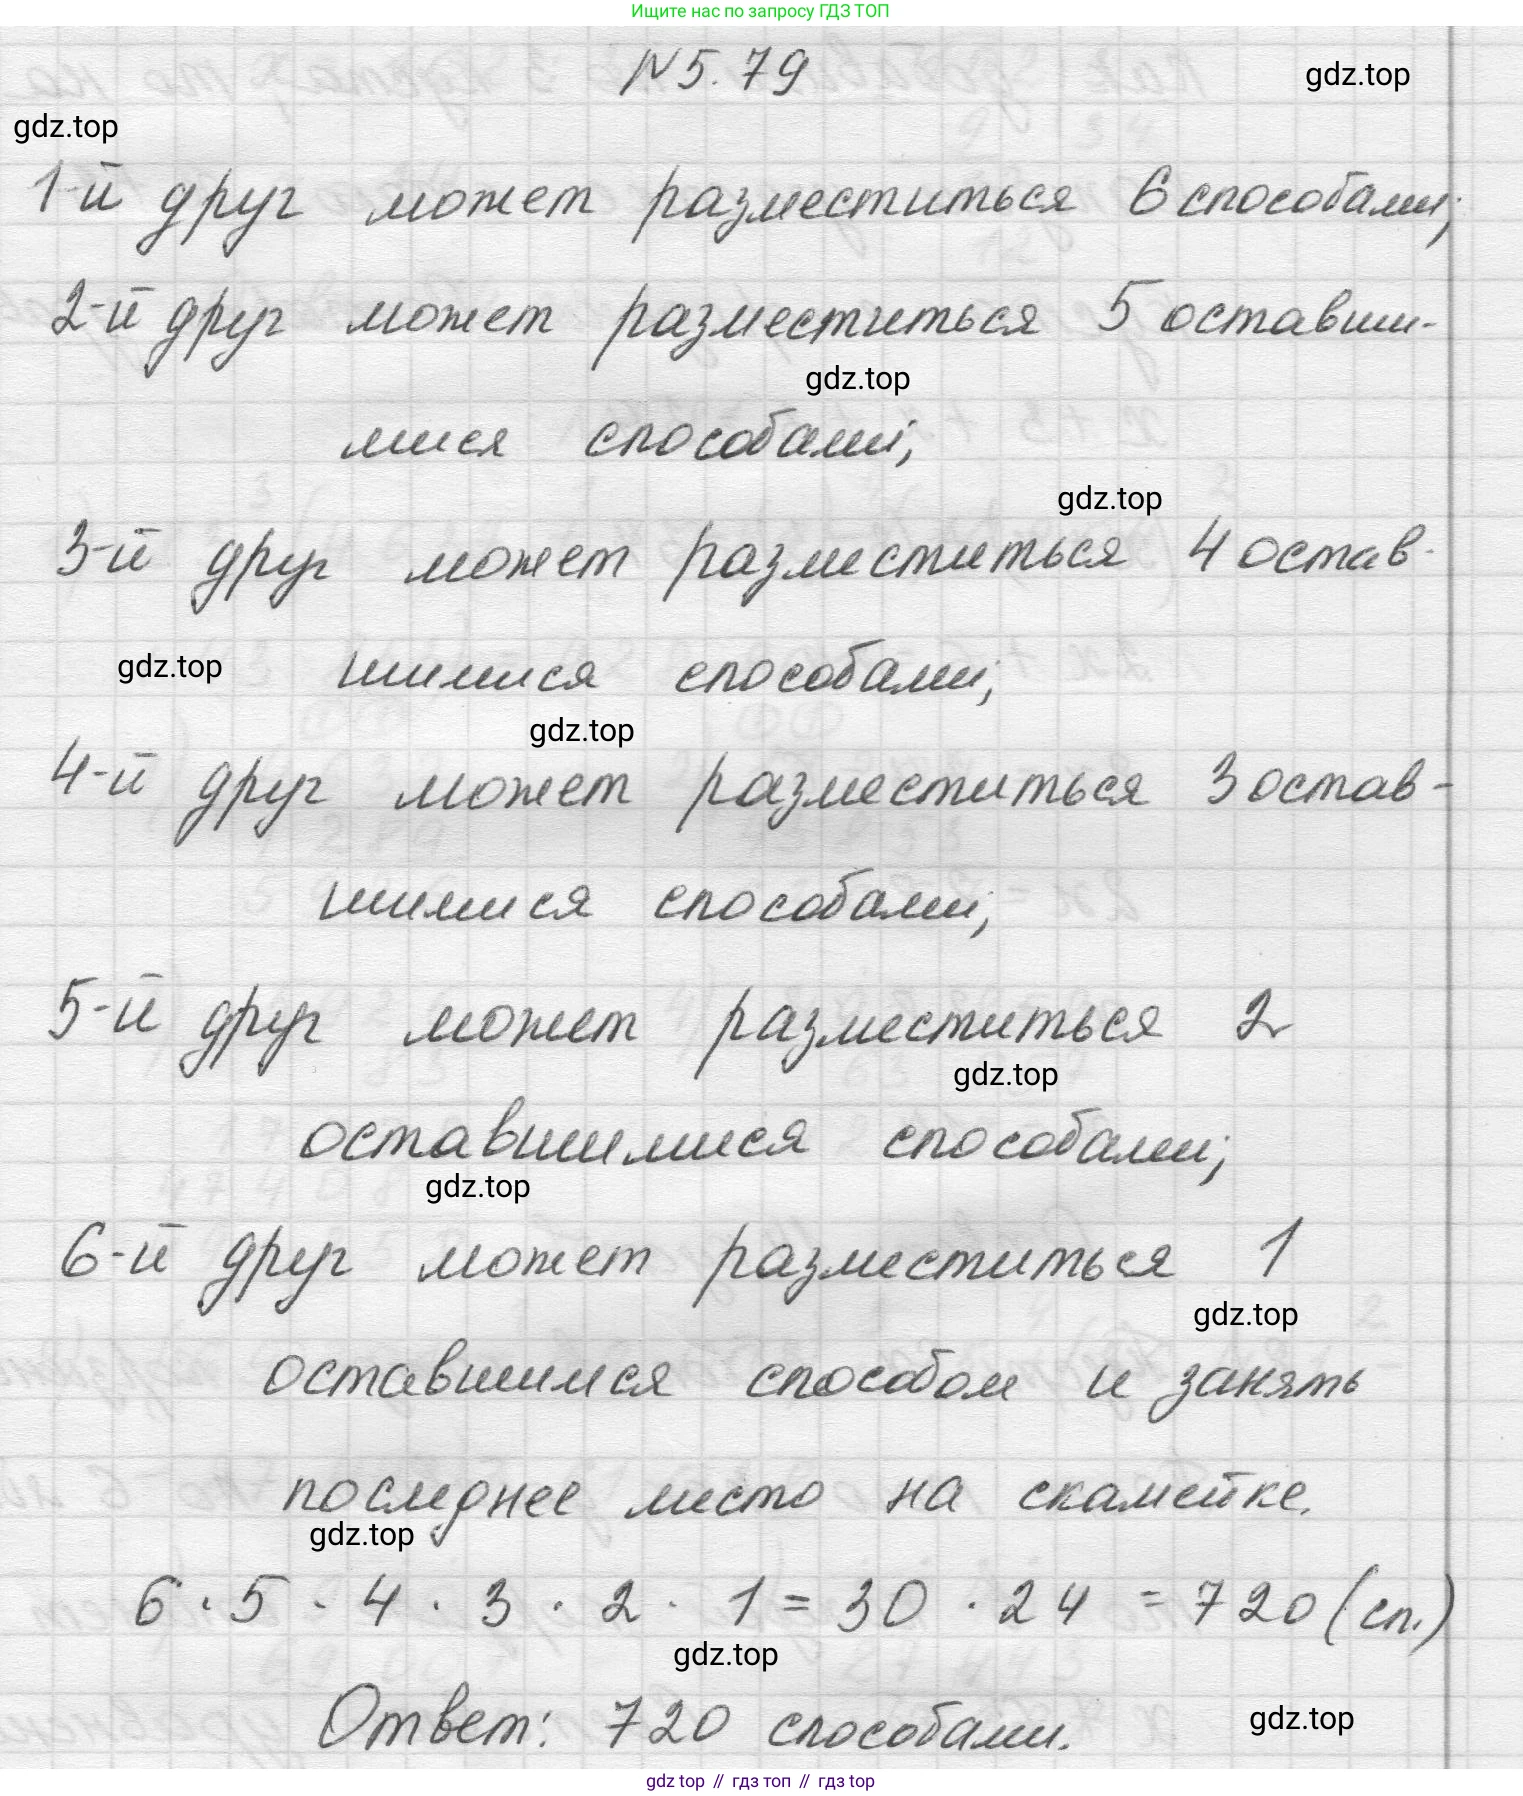 Ищите нас по запросу ГДЗ ТОП
N 5.79
gdz.top
gdz.top
1-й друг может разместиться 6 способами;
2-й друг может разместиться 5 оставши-
gdz.top
мися способами;
gdz.top
3-й друг может разместиться 4 остав-
gdz.top
шимися способами;
gdz.top
4-й друг может разместиться 3 остав-
шимися способами;
5-й друг может разместиться 2
gdz.top
оставшимися способами;
gdz.top
6-й друг может разместиться 1
gdz.top
оставшимся способом и занять
последнее место на скамейке.
gdz.top
6 · 5 · 4 · 3 · 2 · 1 = 30 · 24 = 720 (сп.)
gdz.top
Ответ: 720 способами.
gdz.top
gdz top // гдз топ // гдз top